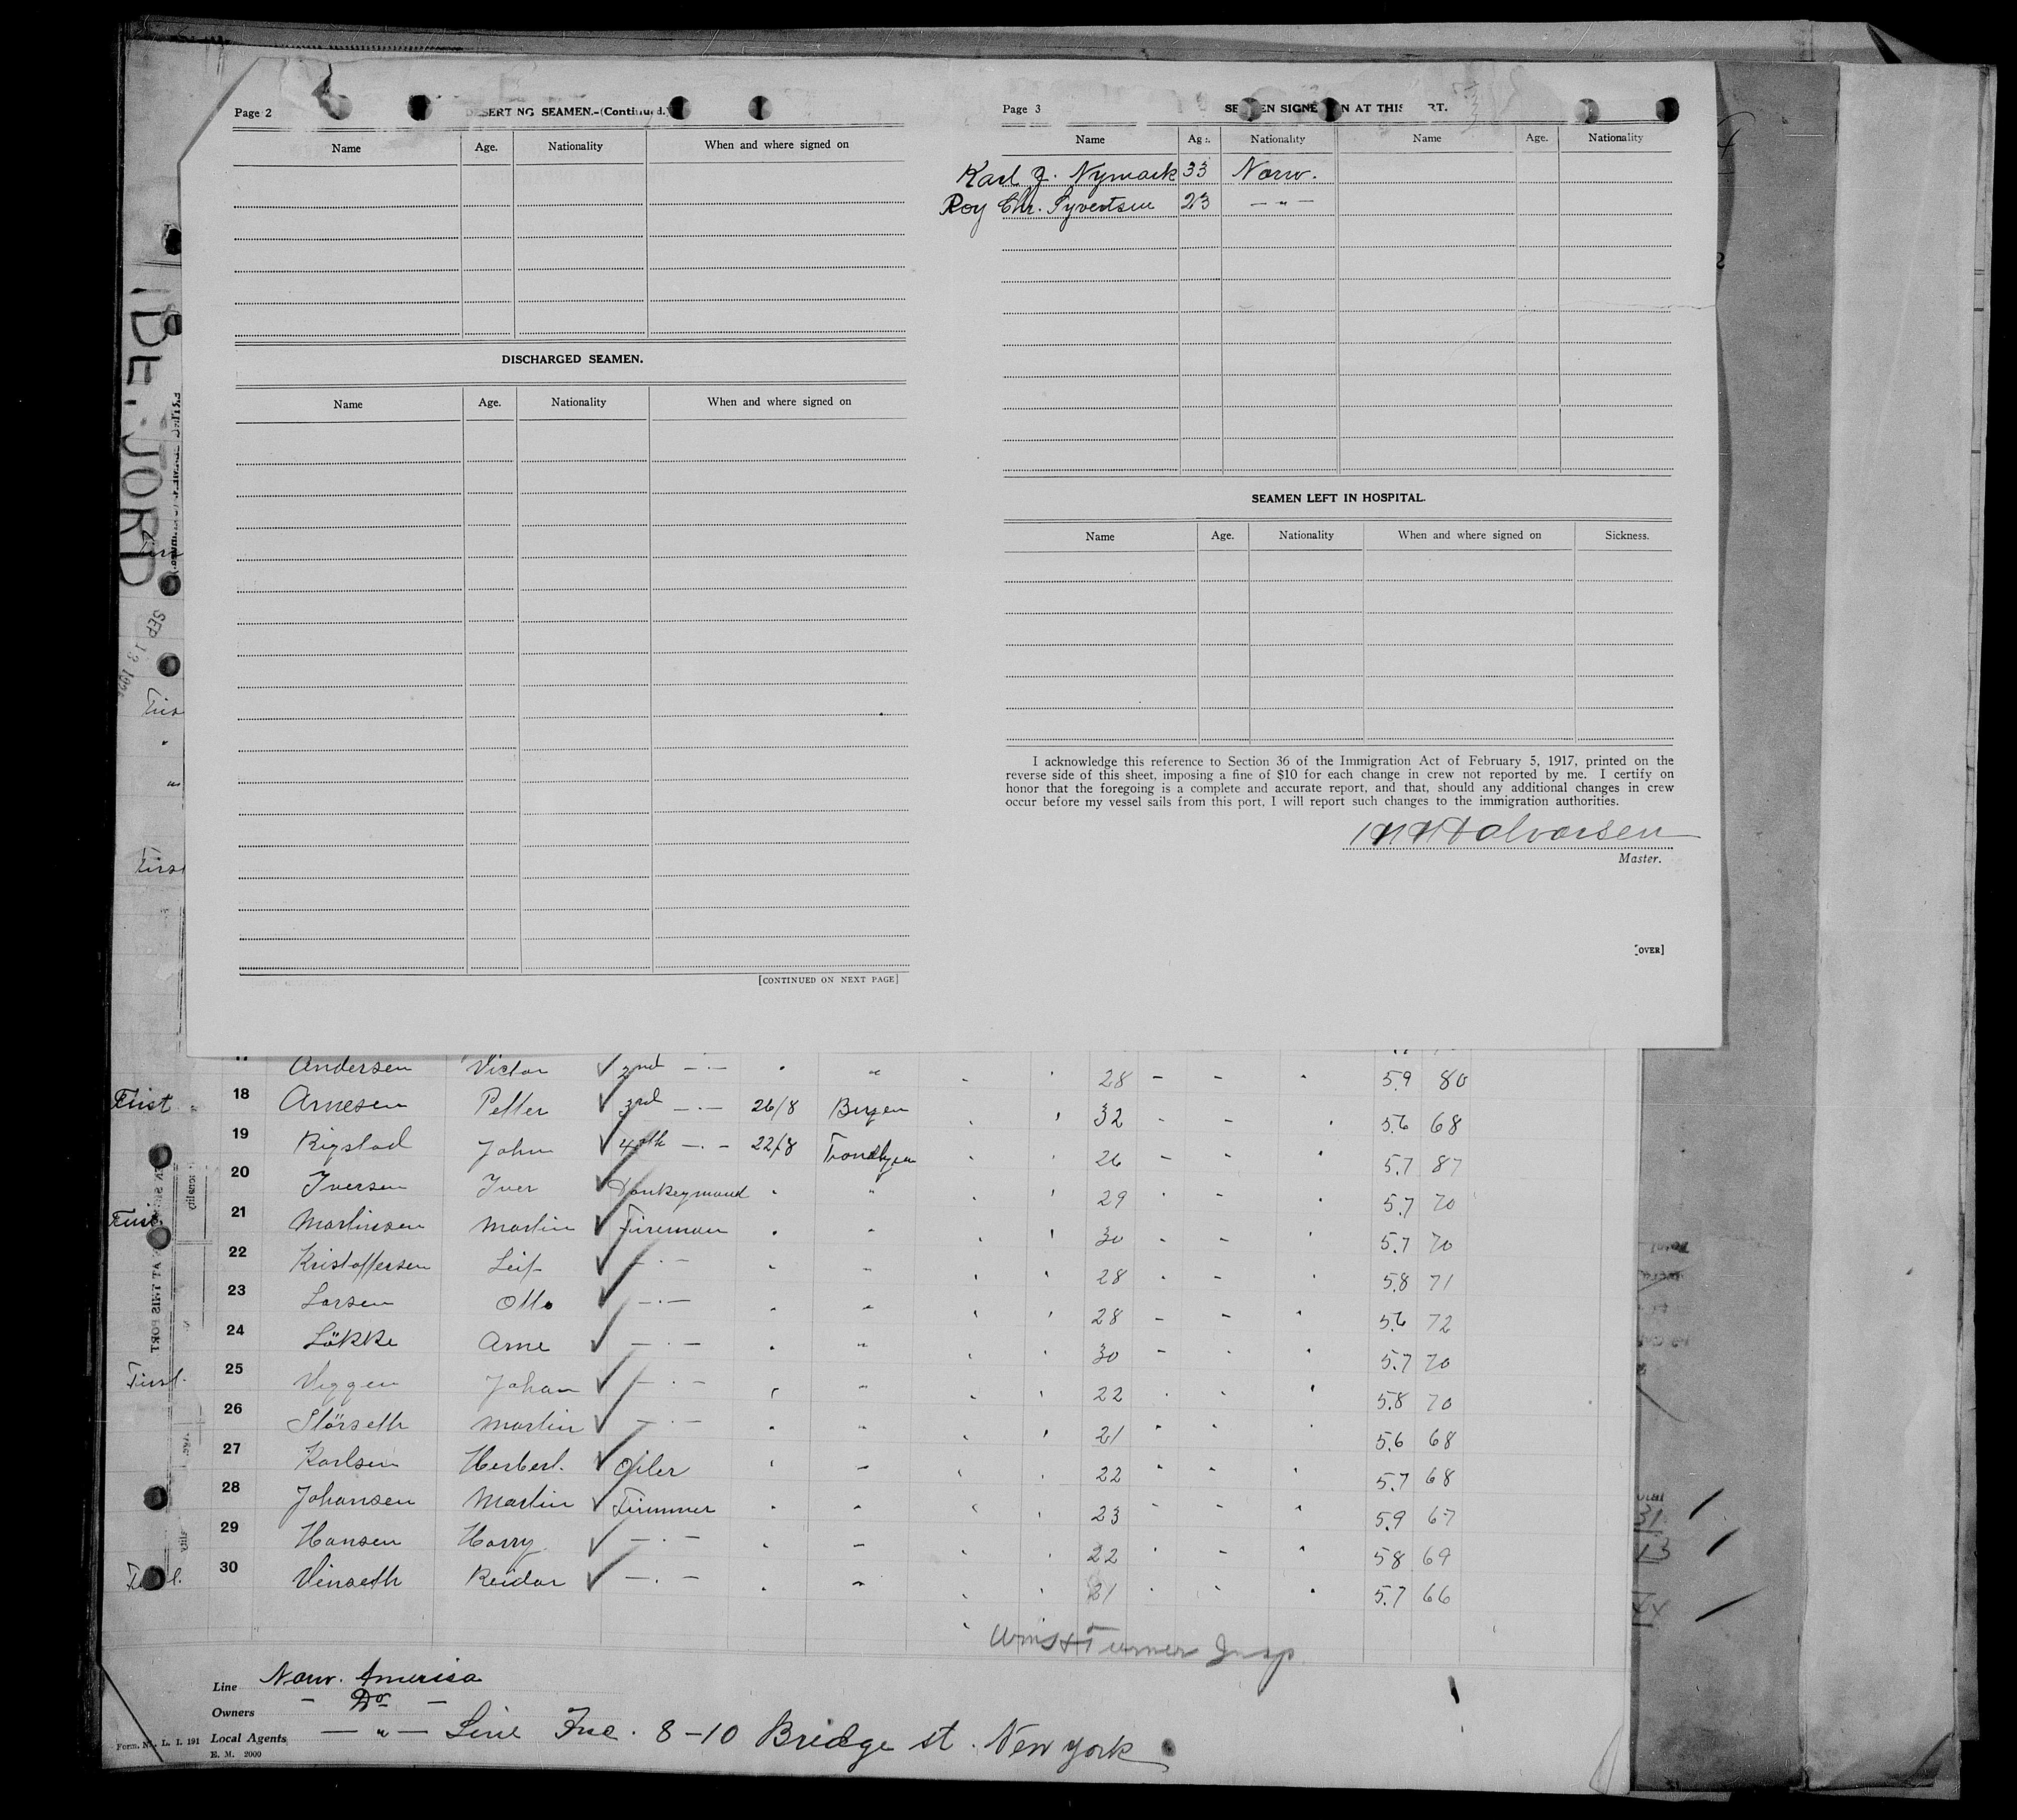 Page 2
DESERTING SEAMEN.-(Continued.)
Name Age. Nationality When and where signed on
DISCHARGED SEAMEN.
Name Age. Nationality When and where signed on
[CONTINUED ON NEXT PAGE]
Page 3
SEAMEN SIGNED ON AT THIS PORT.
Name Age. Nationality Name Age. Nationality
Karl J. Nymark 33 Norw.
Roy Chr. Syvertsen 23 — " —
SEAMEN LEFT IN HOSPITAL.
Name Age. Nationality When and where signed on Sickness.
I acknowledge this reference to Section 36 of the Immigration Act of February 5, 1917, printed on the
reverse side of this sheet, imposing a fine of $10 for each change in crew not reported by me. I certify on
honor that the foregoing is a complete and accurate report, and that, should any additional changes in crew
occur before my vessel sails from this port, I will report such changes to the immigration authorities.
Halvorsen
Master.
[OVER]
SEP 13
Andersen Victor 2nd — " — " " 28 5.9 80
First 18 Arnesen Petter 3rd — " — 26/8 Bergen 32 5.6 68
19 Rigstad John 4th — " — 22/8 Trondhjem 26 5.7 87
20 Iversen Iver Donkeymand " " 29 5.7 70
First 21 Martinsen Martin Fireman " " 30 5.7 70
22 Kristoffersen Leif — " — " " 28 5.8 71
23 Larsen Otto — " — " " 28 5.6 72
24 Løkke Arne — " — " " 30 5.7 70
First. 25 Viggen Johan — " — " " 22 5.8 70
26 Störseth Martin — " — " " 21 5.6 68
27 Karlsen Herbert. Oiler " " 22 5.7 68
28 Johansen Martin Trimmer " " 23 5.9 67
29 Hansen Harry — " — " " 22 5.8 69
30 Vinseth Reidar — " — " " 21 5.7 66
Turner Insp
Line Norw. America
Owners — Do — 
Local Agents — " — Line Inc. 8-10 Bridge st. New York
E. M. 2000
31
13
44